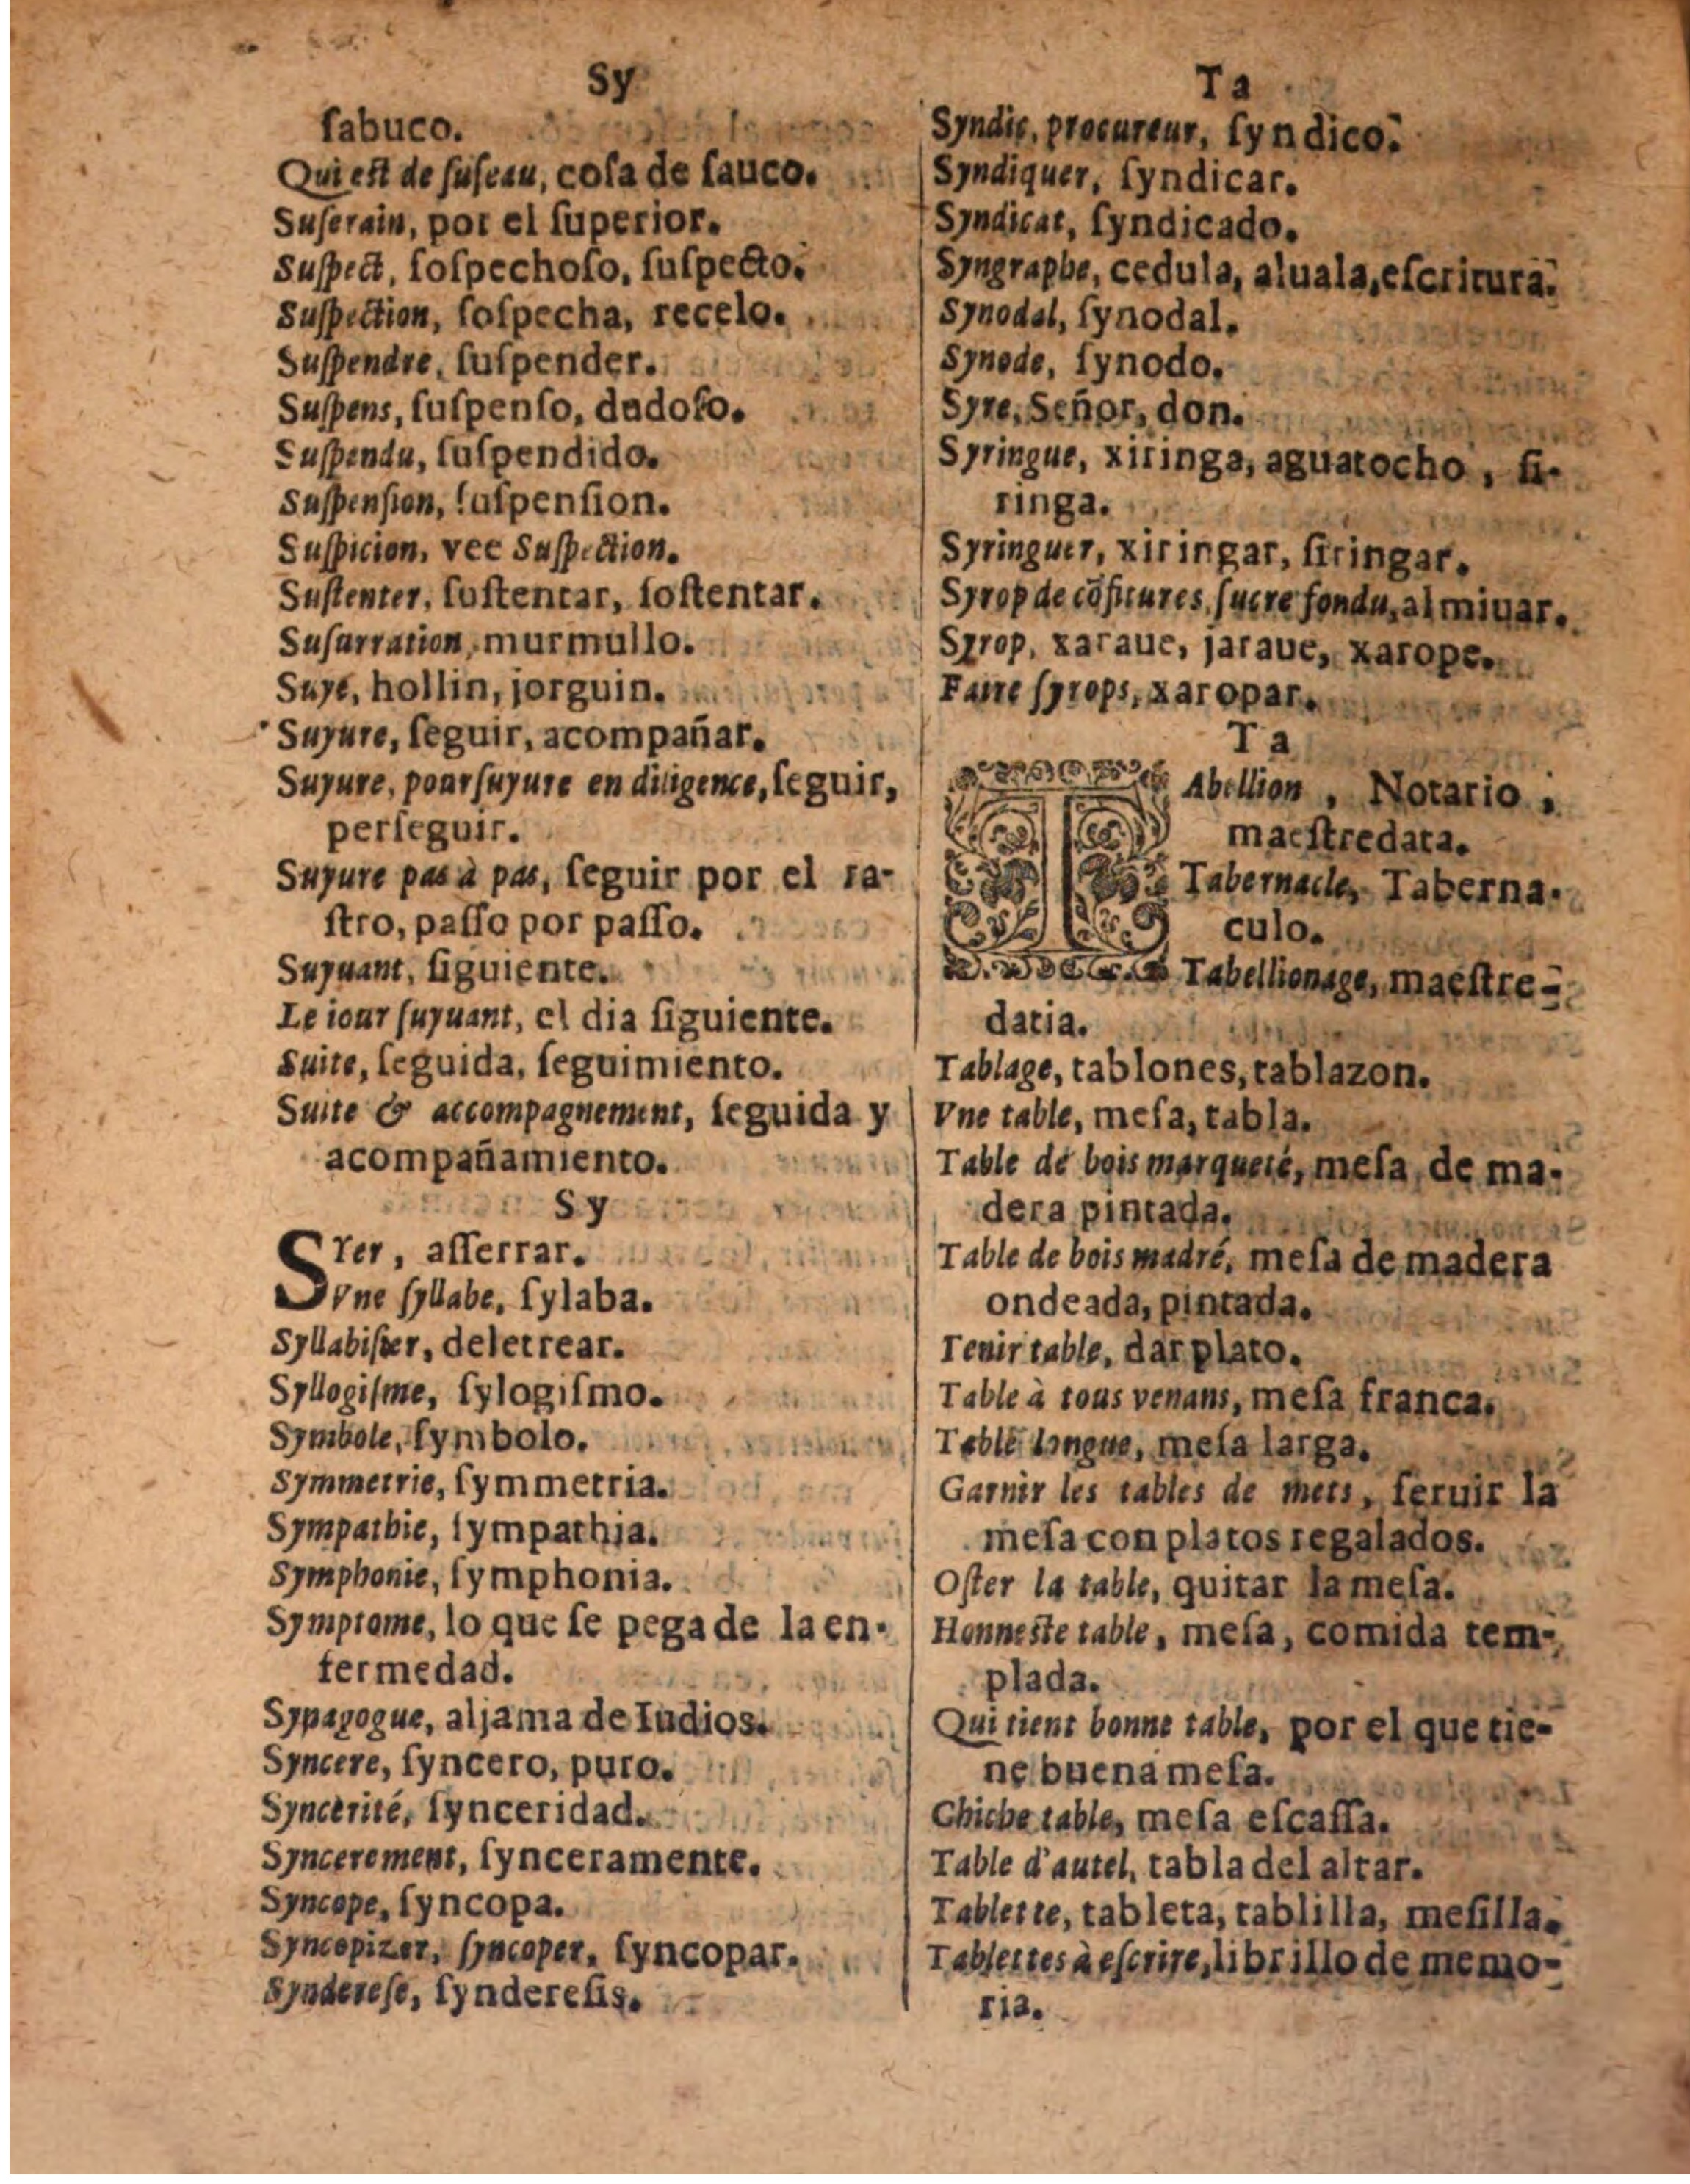 Sy
ſabuco.
Qui eſt de ſuſeau, coſa de ſauco.
Suſerain, por el ſuperior.
Suſpect, ſoſpechoſo, ſuſpecto.
Suſpection, ſoſpecha, recelo.
Suſpendre, ſuſpender.
Suſpens, ſuſpenſo, dudoſo.
Suſpendu, ſuſpendido.
Suſpenſion, ſuſpenſion.
Suſpicion, vee Suſpection.
Suſtenter, ſuſtentar, ſoſtentar.
Suſurration, murmullo.
Suye, hollin, jorguin.
Suyure, ſeguir, acompañar.
Suyure, pourſuyure en diligence, ſeguir,
perſeguir.
Suyure pas à pas, ſeguir por el ra-
ſtro, paſſo por paſſo.
Suyuant, ſiguiente.
Le iour ſuyuant, el dia ſiguiente.
Suite, ſeguida, ſeguimiento.
Suite & accompagnement, ſeguida y
acompañamiento.
Sy
SYer, aſſerrar.
Vne ſyllabe, ſylaba.
Syllabiſer, deletrear.
Syllogiſme, ſylogiſmo.
Symbole, ſymbolo.
Symmetrie, ſymmetria.
Sympathie, ſympathia.
Symphonie, ſymphonia.
Symptome, lo que ſe pega de la en-
fermedad.
Synagogue, aljama de Iudios.
Syncere, ſyncero, puro.
Syncerité, ſynceridad.
Syncerement, ſynceramente.
Syncope, ſyncopa.
Syncopizer, ſyncoper, ſyncopar.
Syndereſe, ſyndereſis.
Ta
Syndic, procureur, ſyndico.
Syndiquer, ſyndicar.
Syndicat, ſyndicado.
Syngraphe, cedula, aluala, eſcritura.
Synodal, ſynodal.
Synode, ſynodo.
Syre, Señor, don.
Syringue, xiringa, aguatocho, ſi-
ringa.
Syringuer, xiringar, ſiringar.
Syrop de cõfitures, ſucre fondu, almiuar.
Syrop, xaraue, jaraue, xarope.
Faire ſyrops, xaropar.
Ta
TAbellion, Notario,
maeſtredata.
Tabernacle, Taberna-
culo.
Tabellionage, maeſtre-
datia.
Tablage, tablones, tablazon.
Vne table, meſa, tabla.
Table de bois marqueté, meſa de ma-
dera pintada.
Table de bois madré, meſa de madera
ondeada, pintada.
Tenir table, dar plato.
Table à tous venans, meſa franca.
Table longue, meſa larga.
Garnir les tables de mets, ſeruir la
meſa con platos regalados.
Oſter la table, quitar la meſa.
Honneſte table, meſa, comida tem-
plada.
Qui tient bonne table, por el que tie-
ne buena meſa.
Chiche table, meſa eſcaſſa.
Table d'autel, tabla del altar.
Tablette, tableta, tablilla, meſilla.
Tablettes à eſcrire, librillo de memo-
ria.